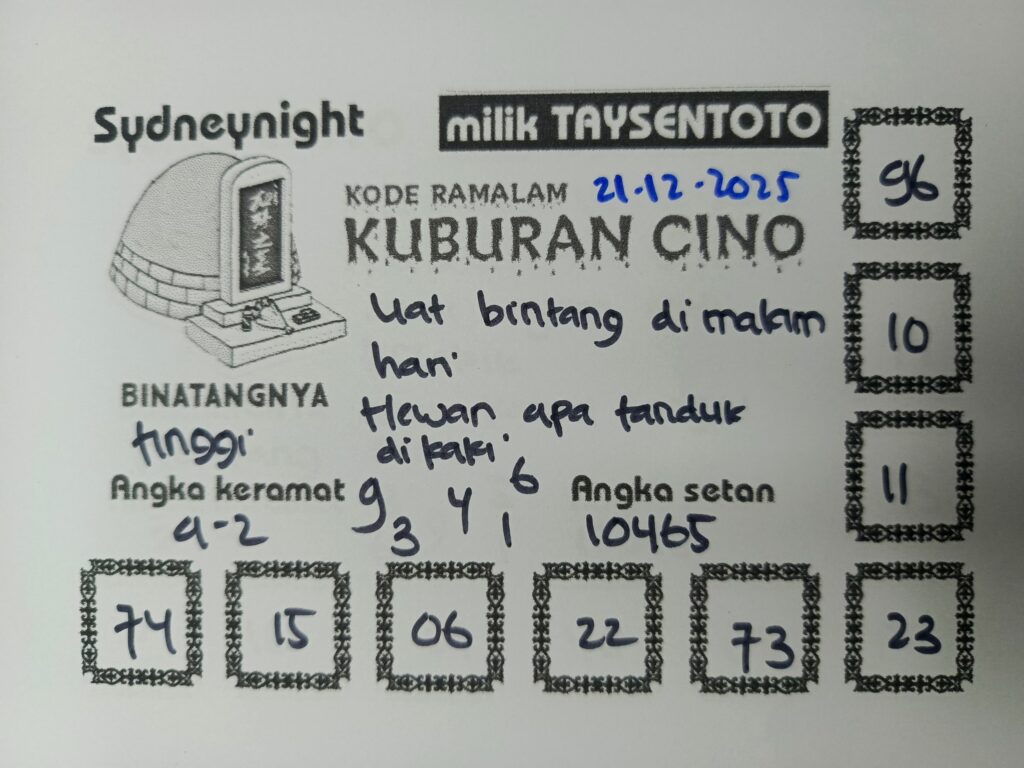 Sydneynight
milik TAYSENTOTO
KODE RAMALAM 21-12-2025
KUBURAN CINO
Uat bintang di malam
hari
Hewan apa tanduk
di kaki
BINATANGNYA
tinggi
Angka keramat
9-2
9 3 4 1 6
Angka setan
10465
96
10
11
74 15 06 22 73 23